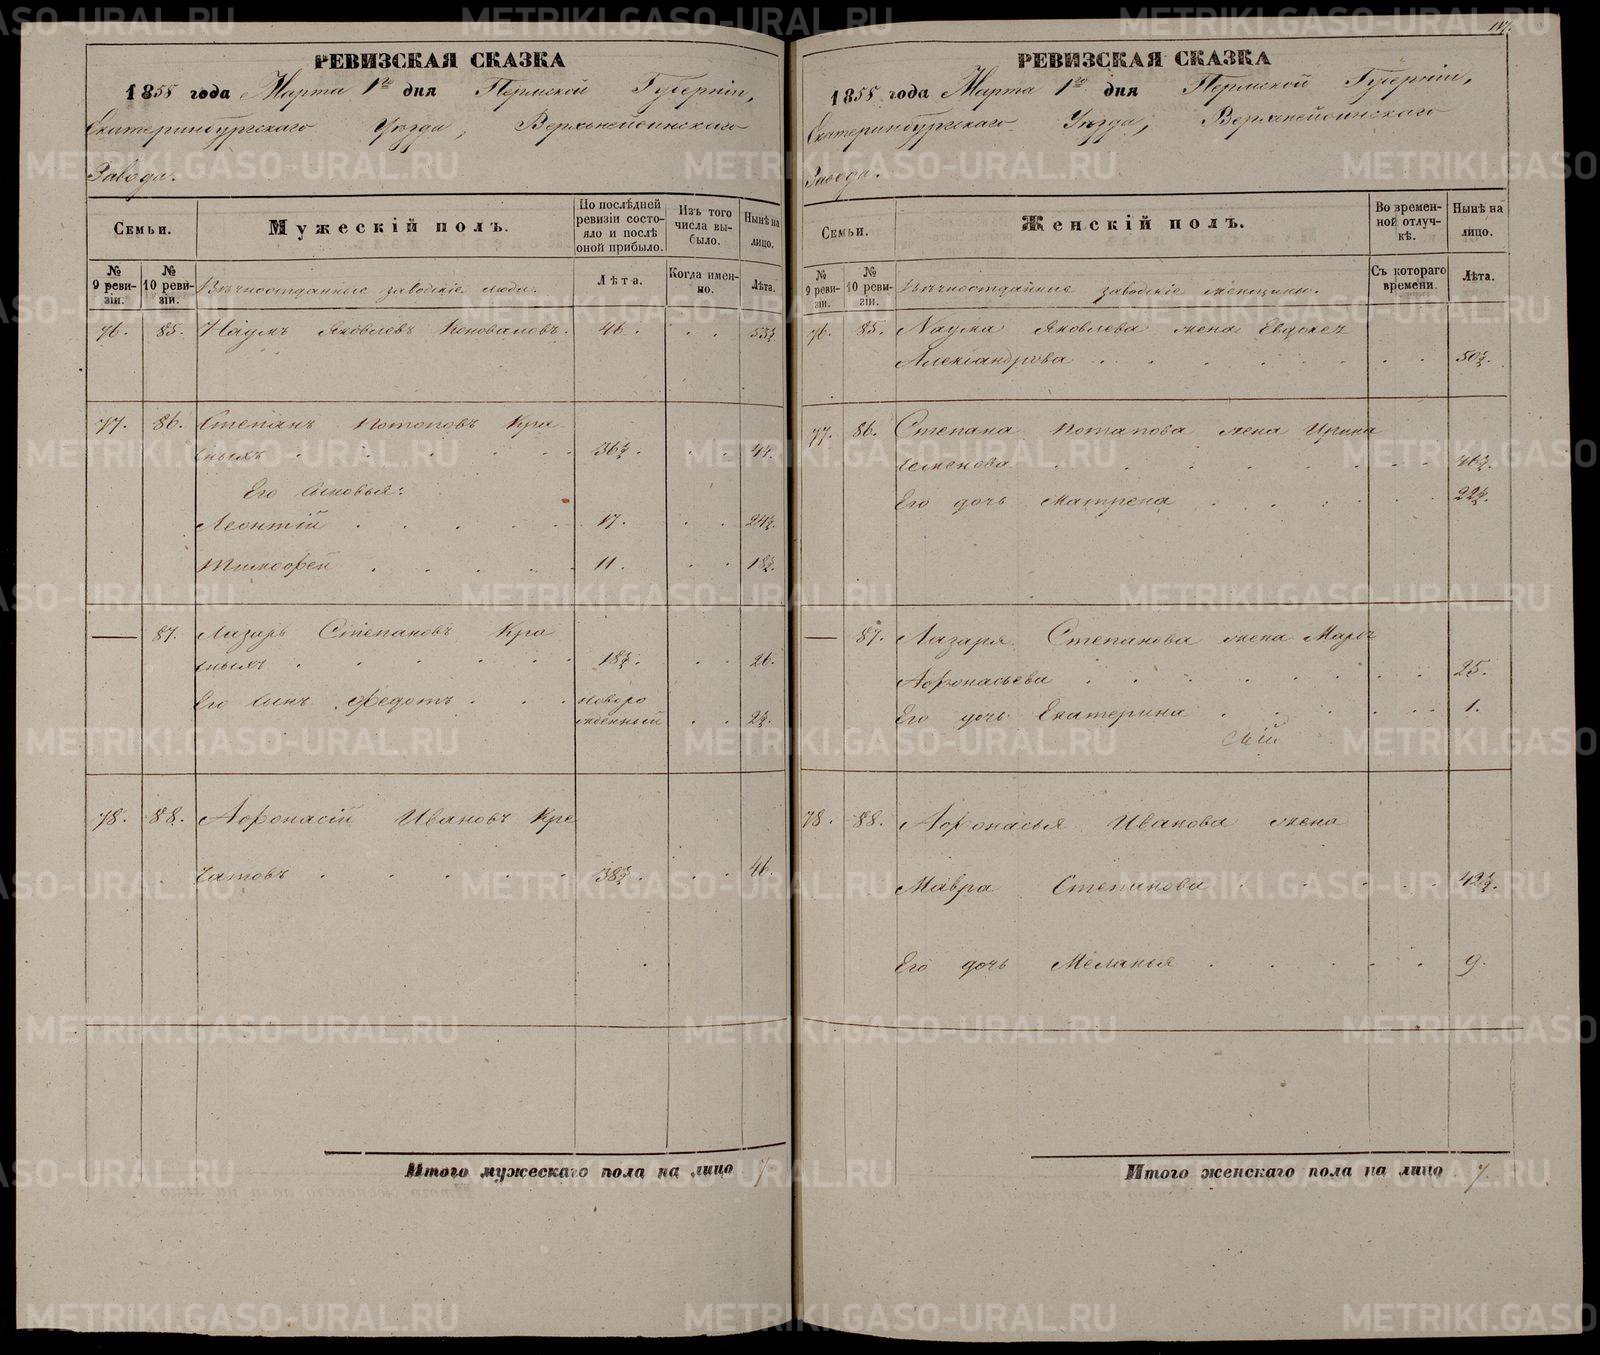 РЕВИЗСКАЯ СКАЗКА
1858 года Марта 1го дня Пермской Губерніи,
Екатеринбургскаго Уезда, Верхънейвинскаго
Завода.
Семьи.
Мужескій полъ.
По послѣдней ревизіи состояло и послѣ оной прибыло.
Изъ того числа выбыло.
Нынѣ на лицо.
№ 9 ревизіи.
№ 10 ревизіи.
Вѣчноотданные заводскіе люди.
Лѣта.
Когда именно.
Лѣта.
76. 85. Наумъ Яковлевъ Коноваловъ. 46. 53½.
77. 86. Степанъ Потаповъ Кра
сныхъ 36½. 44.
Его Сыновья:
Леонтій 17. 24½.
Тимофей 11. 18½.
— 87. Лазарь Степановъ Кра
сныхъ 18½. 26.
Его сынъ Федотъ новоро
жденный 2½.
78. 88. Афонасій Ивановъ Кре
чатовъ 38½. 46.
Итого мужескаго пола на лицо 7
РЕВИЗСКАЯ СКАЗКА
1858 года Марта 1го дня Пермской Губерніи,
Екатеринбургскаго Уезда, Верхнейвинскаго
Завода.
Семьи.
Женскій полъ.
Во временной отлучкѣ.
Нынѣ на лицо.
№ 9 ревизіи.
№ 10 ревизіи.
Вѣчноотданные заводскіе женщины.
Съ котораго времени.
Лѣта.
76. 85. Наума Яковлева жена Евдокея
Александрова 50½.
77. 86. Степана Потапова жена Ирина
Семенова 46½.
Его дочь Матрена 22½.
— 87. Лазаря Степанова жена Марья
Афонасьева 25.
Его дочь Екатерина 1.
78. 88. Афонасья Иванова жена
Мавра Степанова 42½.
Его дочь Меланья 9.
Итого женскаго пола на лицо 7.
METRIKI.GASO-URAL.RU